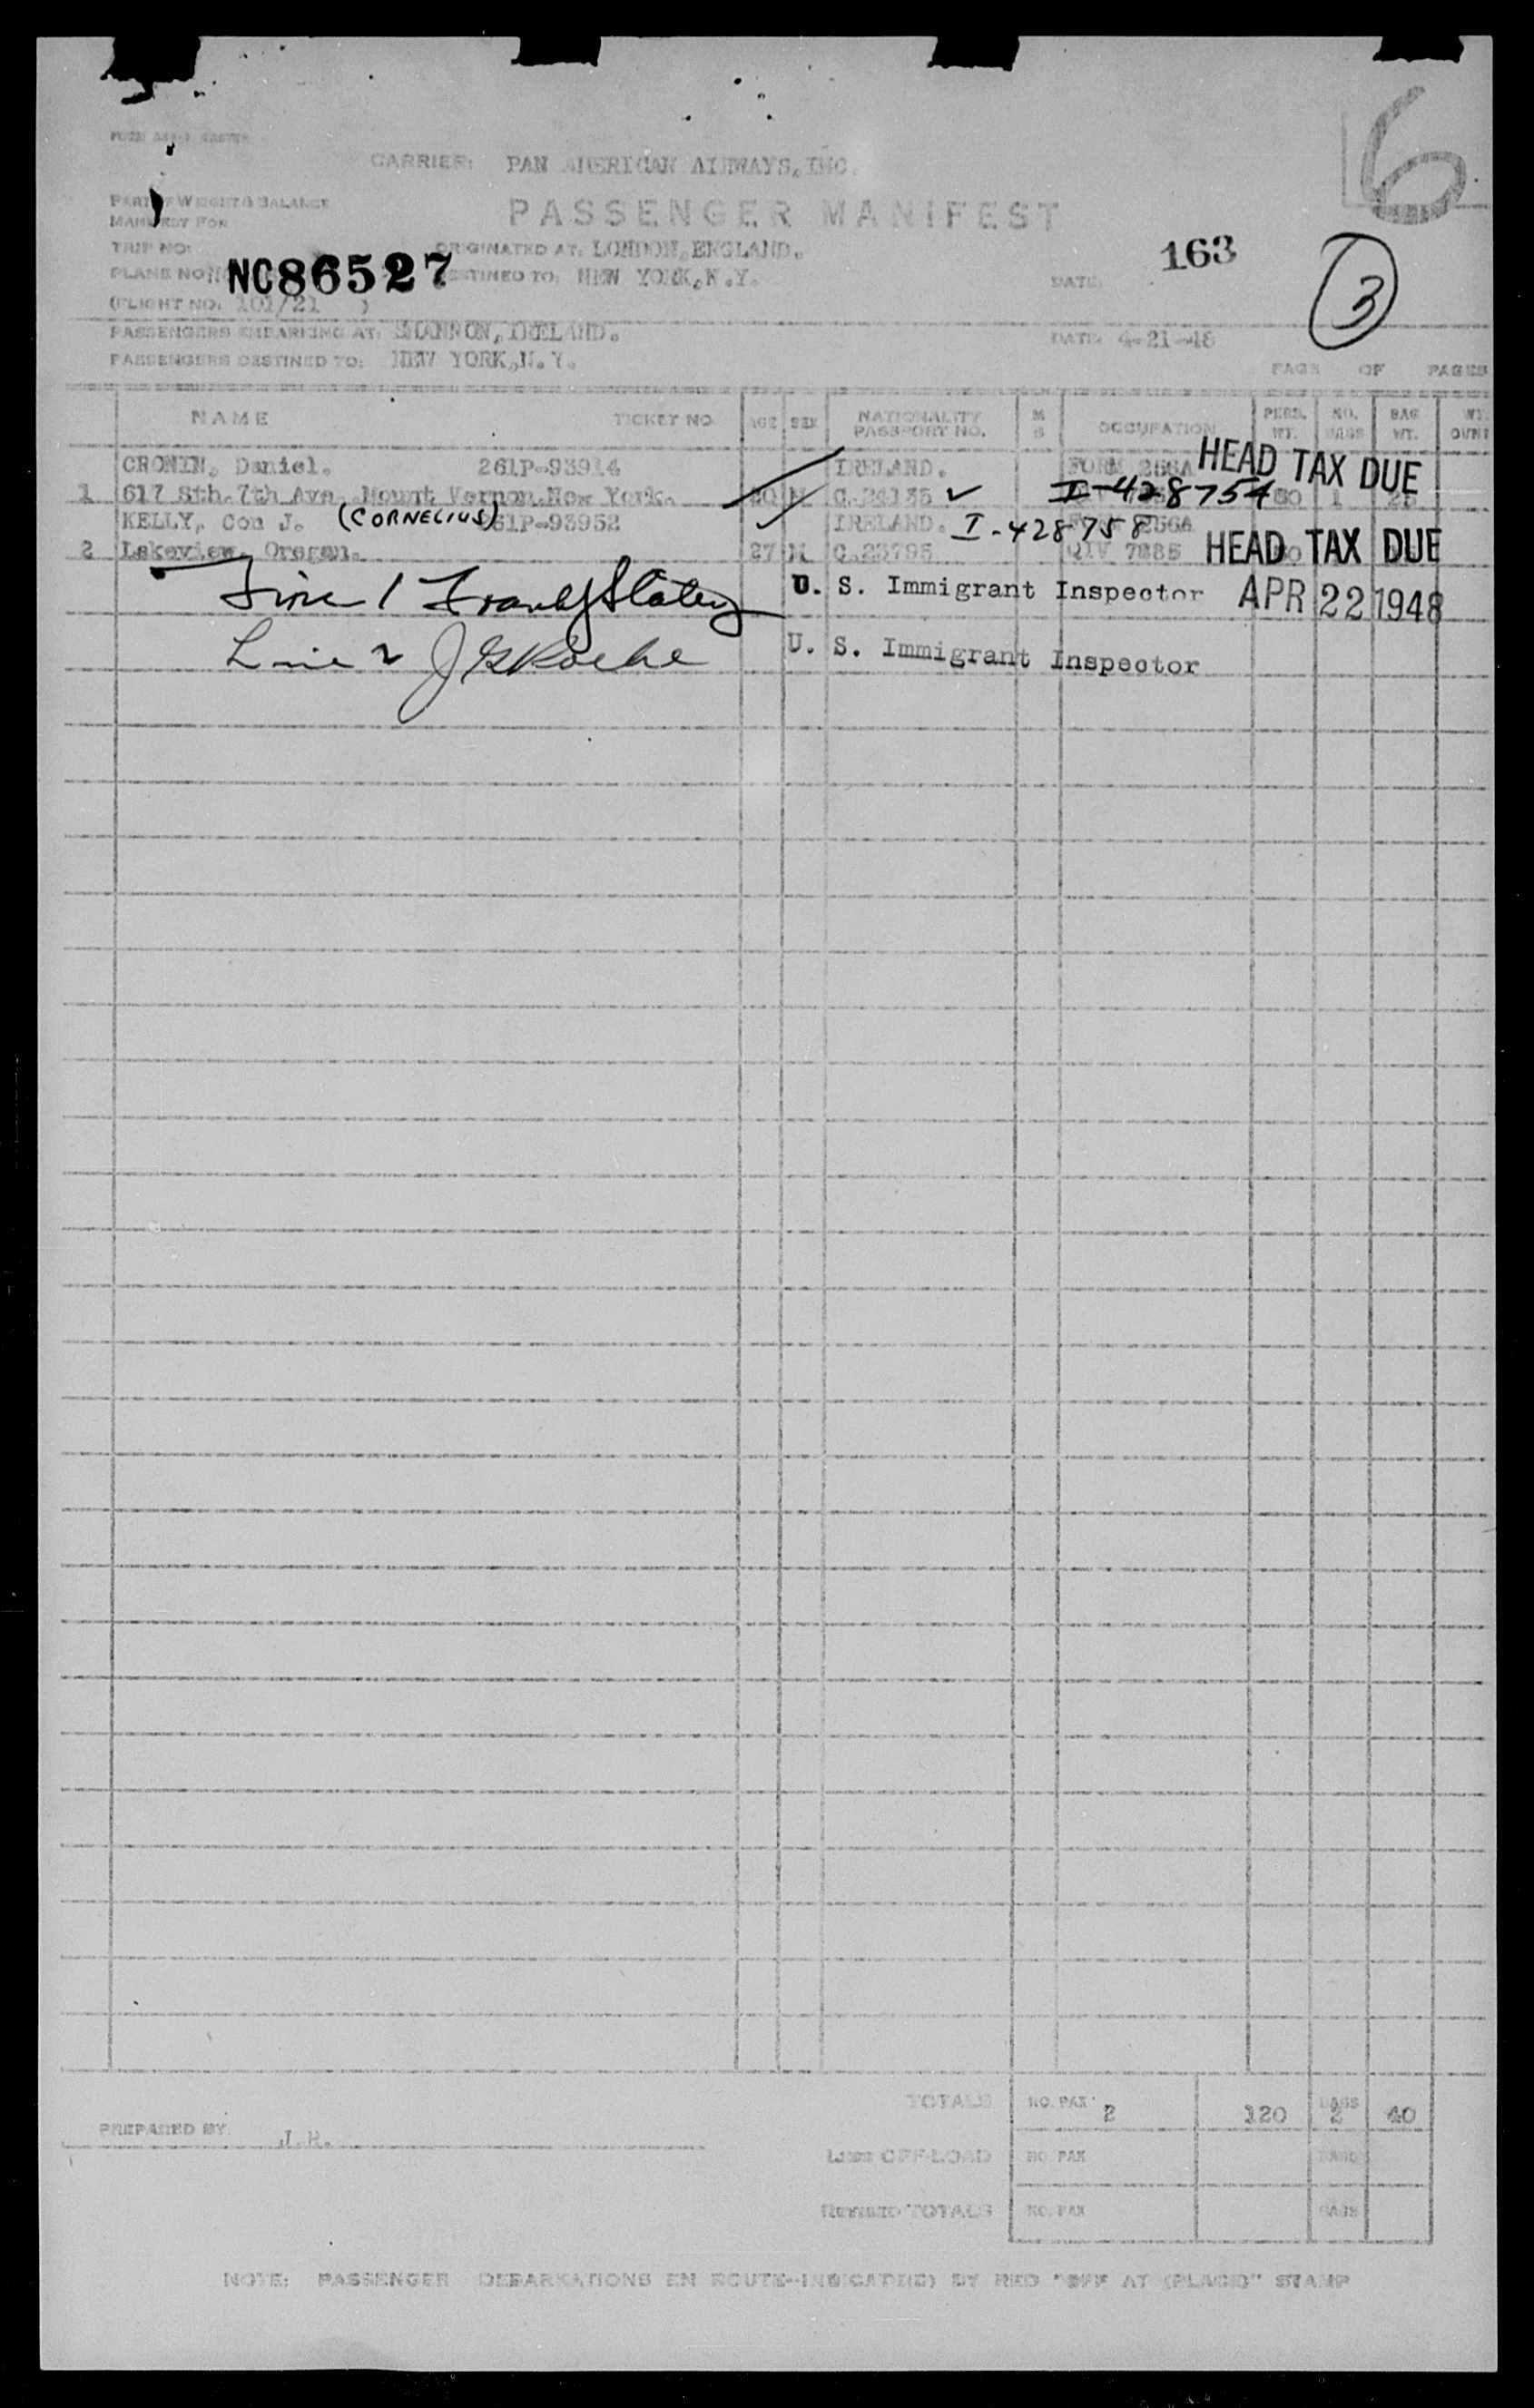 6
CARRIER: PAN AMERICAN AIRWAYS, INC.
PART OF WEIGHT & BALANCE
PASSENGER MANIFEST
MANIFEST FOR
TRIP NO: ORIGINATED AT: LONDON, ENGLAND. 163
PLANE NO: NC86527 DESTINED TO: NEW YORK, N.Y. DATE: 3
(FLIGHT NO. 101/21 )
PASSENGERS EMBARKING AT: SHANNON, IRELAND. DATE: 4-21-48
PASSENGERS DESTINED TO: NEW YORK, N.Y. PAGE OF PAGES
NAME TICKET NO. AGE SEX NATIONALITY PASSPORT NO. M S OCCUPATION PERS. WT. NO. BAGS BAG WT.
CRONIN, Daniel. 261P-93914 IRELAND. FORM 256A HEAD TAX DUE
1 617 Sth. 7th Ave. Mount Vernon. New York. 20 M C.24135 I-428754 1
KELLY, Con J. (CORNELIUS) 261P-93952 IRELAND. I-428758 256A
2 Lakeview, Oregon. 27 M C.23795 QIV 7885 HEAD TAX DUE
Line 1 Frank J Slatery U. S. Immigrant Inspector APR 22 1948
Line 2 J G Roche U. S. Immigrant Inspector
TOTALS NO. PAX 2 120 BAGS 2 40
PREPARED BY: J.H.
Less OFF-LOAD NO. PAX BAGS
Revised TOTALS NO. PAX BAGS
NOTE: PASSENGER DEBARKATIONS EN ROUTE--INDICATE(D) BY RED "OFF AT (PLACE)" STAMP